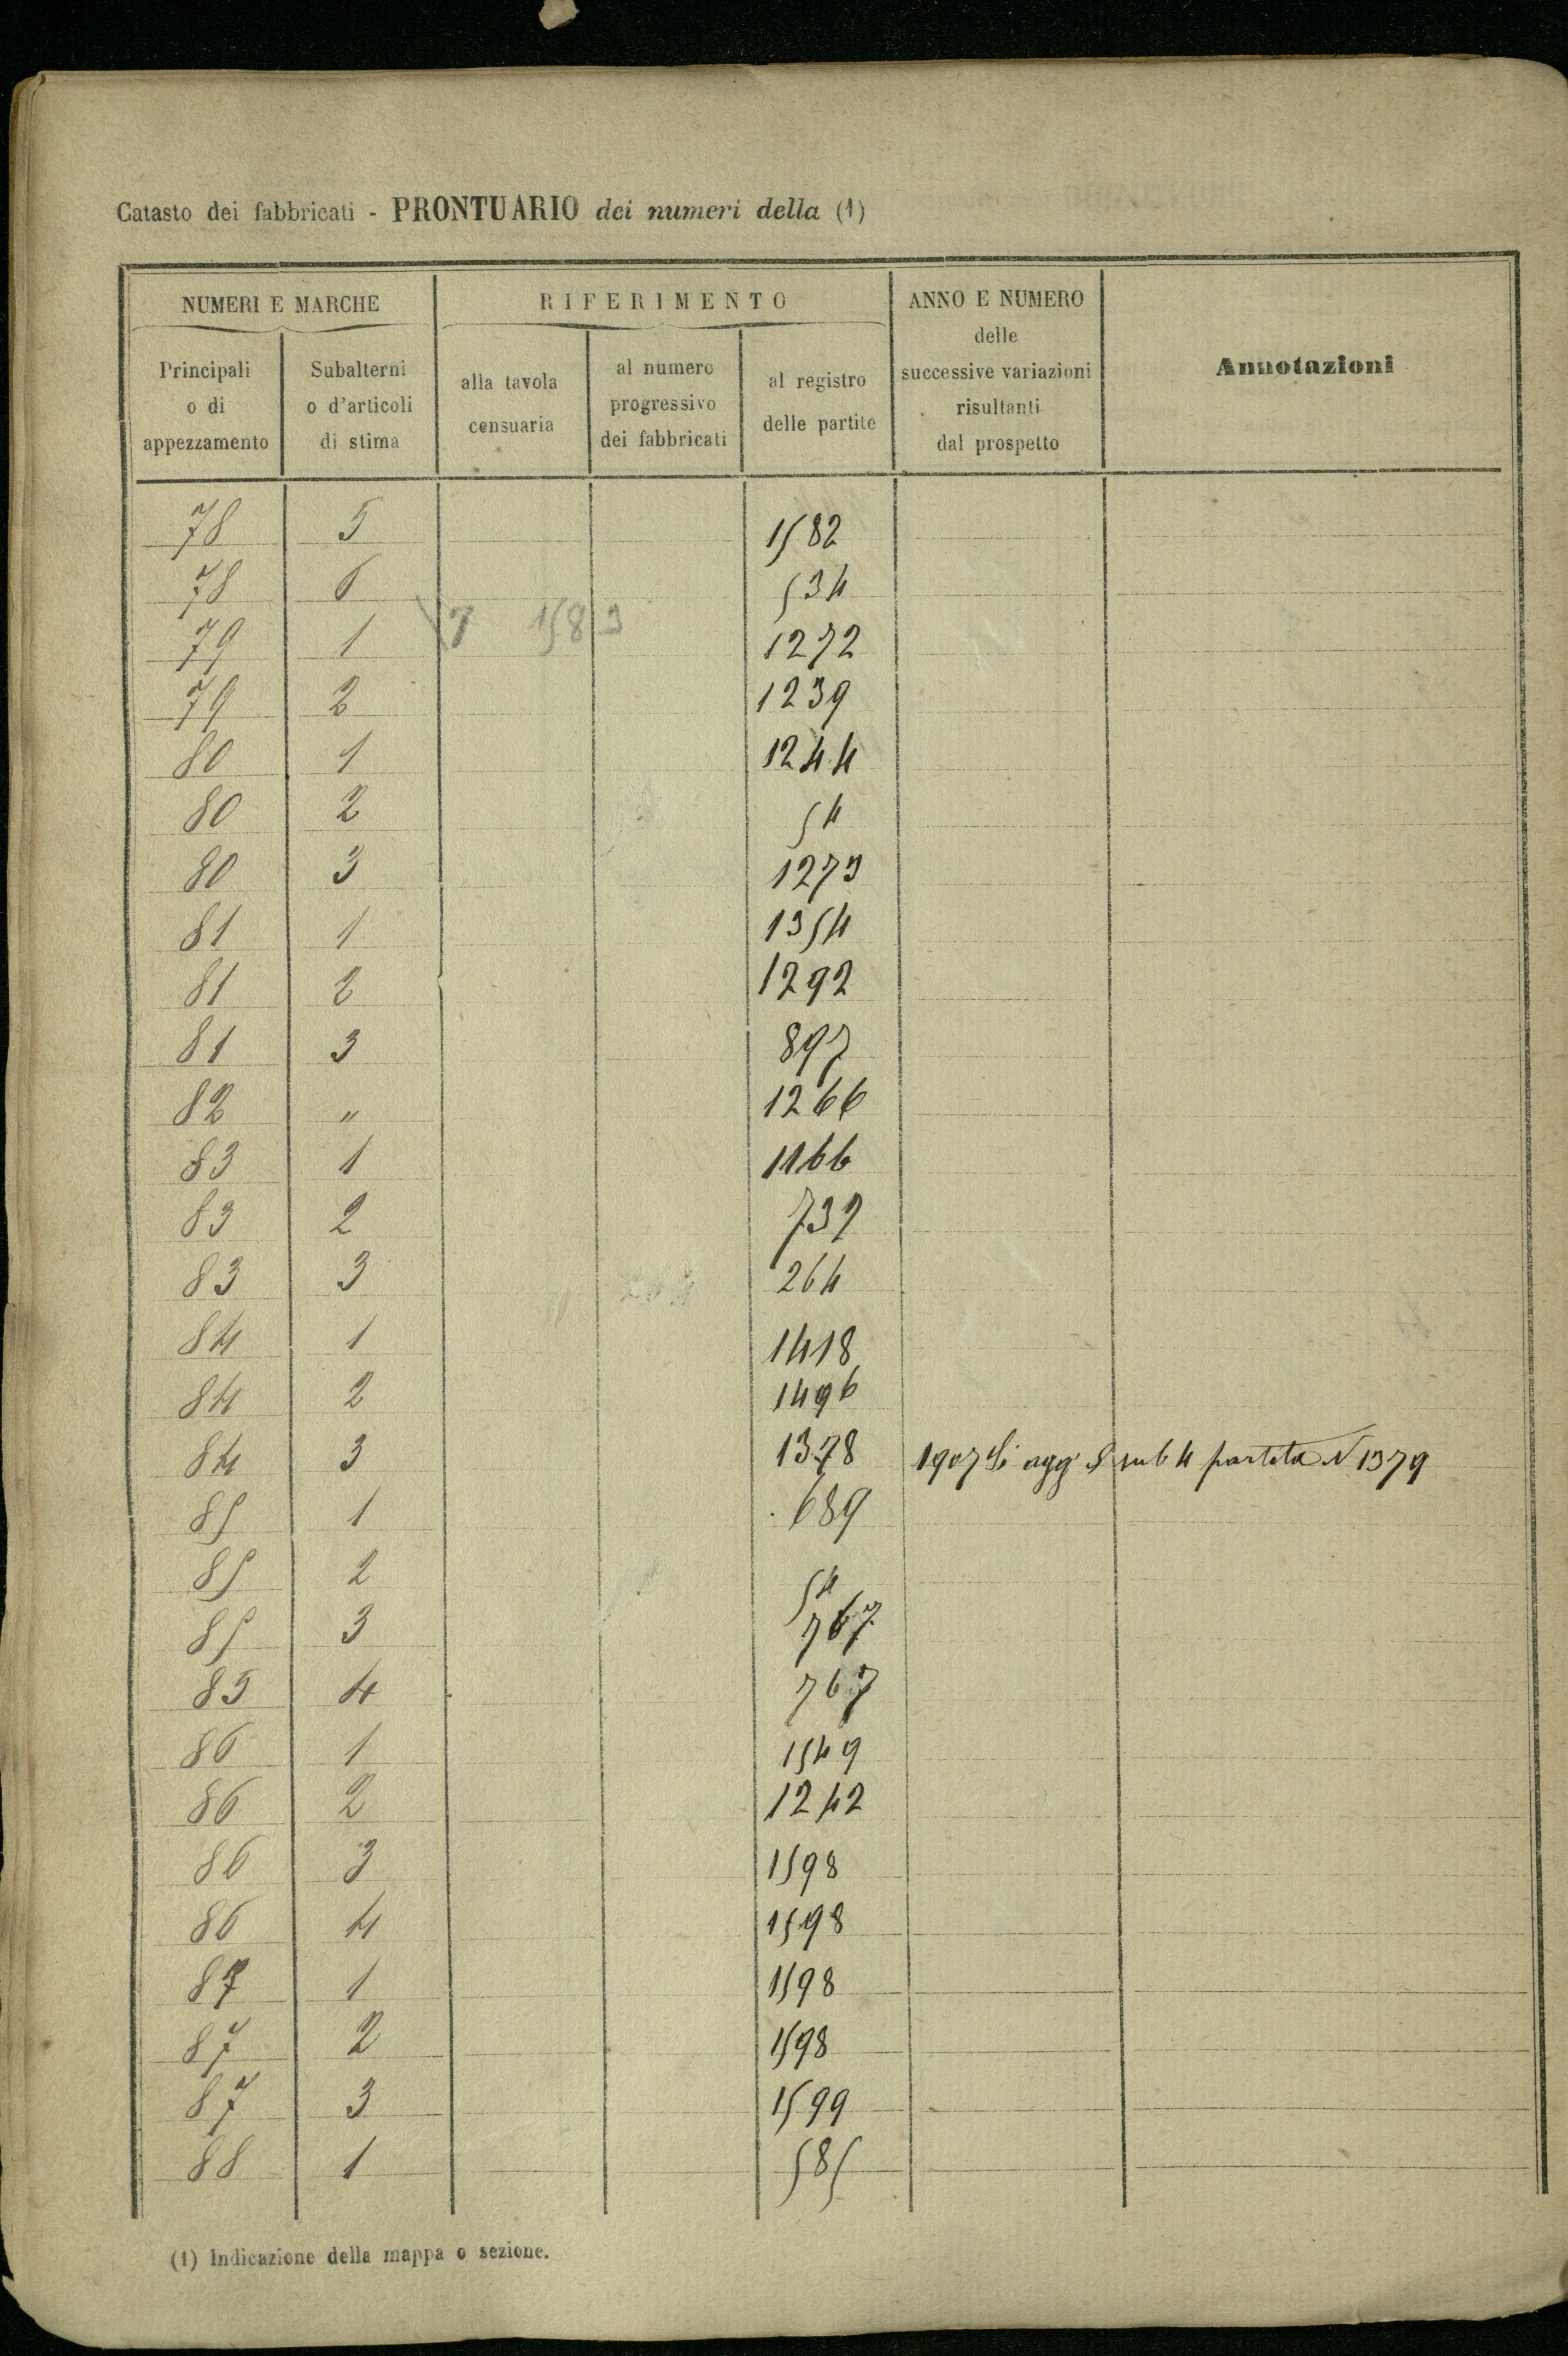 Catasto dei fabbricati - PRONTUARIO dei numeri della (1)
NUMERI E MARCHE
RIFERIMENTO
ANNO E NUMERO
delle
successive variazioni
risultanti
dal prospetto
Annotazioni
Principali
o di
appezzamento
Subalterni
o d'articoli
di stima
alla tavola
censuaria
al numero
progressivo
dei fabbricati
al registro
delle partite
78 5 1582
78 6 534
7 1583
79 1 1272
79 2 1239
80 1 1244
80 2 54
80 3 1273
81 1 1354
81 2 1292
81 3 897
82 " 1266
83 1 1166
83 2 732
83 3 264
84 1 1418
84 2 1496
84 3 1378 1907 Si agg. sub 4 partita N 1379
85 1 689
85 2 54
85 3 767
85 4 767
86 1 1549
86 2 1242
86 3 1598
86 4 1598
87 1 1598
87 2 1598
87 3 1599
88 1 585
(1) Indicazione della mappa o sezione.